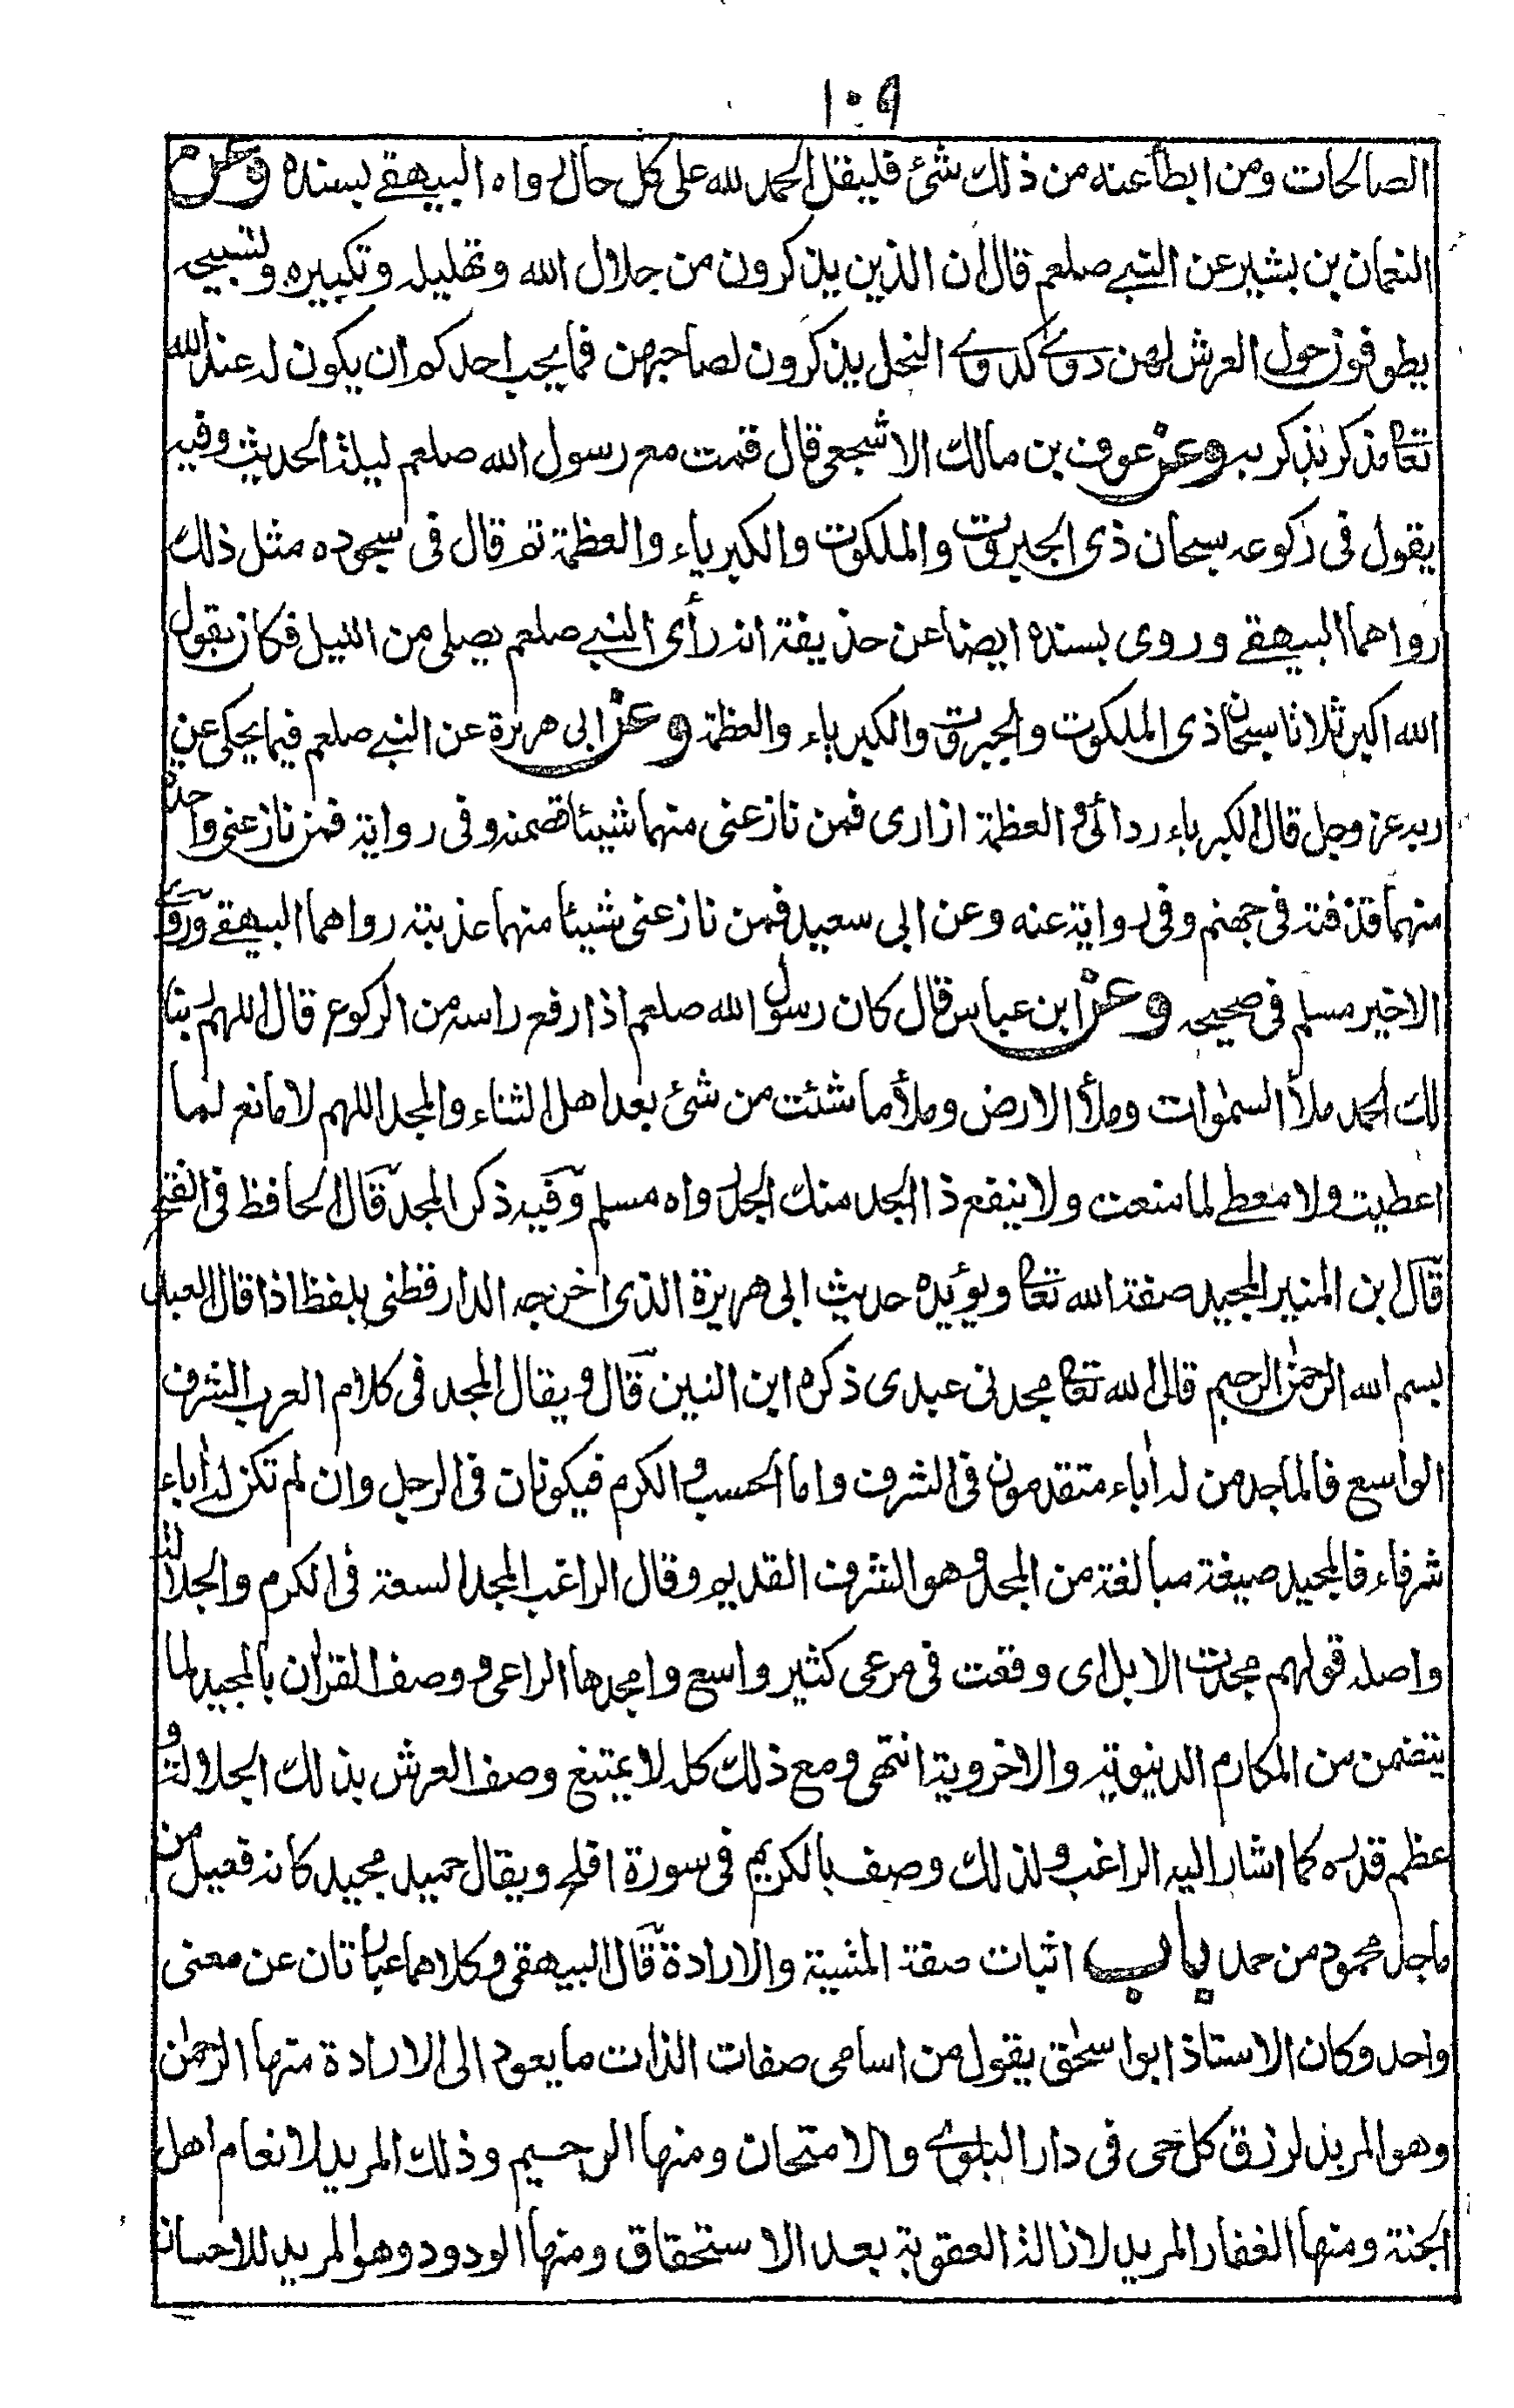 ١٠٩
الصالحات ومن ابطأ عنه من ذلك شئ فليقل الحمد لله على كل حال رواه البيهقے بسنده وعن
النعمان بن بشير عن النبے صلعم قال ان الذين يذكرون من جلال الله وتهليله وتكبيره وتسبيحه
يطوفون حول العرش لهن دوے كدوے النحل يذكرون لصاحبهن فما يحب احدكم ان يكون له عند الله
تعا مذكر يذكر به وعن عوف بن مالك الاشجعى قال قمت مع رسول الله صلعم ليلة الحديث وفيه
يقول فى ركوعه سبحان ذى الجبروت والملكوت والكبرياء والعظمة ثم قال فى سجوده مثل ذلك
رواهما البيهقے وروى بسنده ايضا عن حذيفة انه رأى النبے صلعم يصلى من الليل فكان يقول
الله اكبر ثلاثا سبحان ذى الملكوت والجبروت والكبرياء والعظمة وعن ابى هريرة عن النبے صلعم فيما يحكى عن
ربه عز وجل قال الكبرياء ردائى والعظمة ازارى فمن نازعنى منهما شيئا قصمته وفى رواية فمن نازعنى واحدة
منهما قذفته فى جهنم وفى رواية عنه وعن ابى سعيد فمن نازعنى شيئا منهما عذبته رواهما البيهقے وروے
الاخير مسلم فى صحيحه وعن ابن عباس قال كان رسول الله صلعم اذا رفع راسه من الركوع قال اللهم ربنا
لك الحمد ملأ السمٰوات وملأ الارض وملأ ما شئت من شئ بعد اهل الثناء والمجد اللهم لا مانع لما
اعطيت ولا معطى لما منعت ولا ينفع ذا الجد منك الجد رواه مسلم وفيه ذكر المجد قال الحافظ فى الفتح
قال ابن المنير المجيد صفة الله تعا ويؤيده حديث ابى هريرة الذى اخرجه الدارقطنى بلفظ اذا قال العبد
بسم الله الرحمٰن الرحيم قال الله تعا مجدنى عبدى ذكره ابن التين قال ويقال المجد فى كلام العرب الشرف
الواسع فالماجد من له اٰباء متقدمون فى الشرف واما الحسب والكرم فيكونان فى الرجل وان لم تكن له اٰباء
شرفاء فالمجيد صيغة مبالغة من المجد وهو الشرف القديم وقال الراغب المجد السعة فى الكرم والجلالة
واصله قولهم مجدت الابل اى وقعت فى مرعى كثير واسع وامجدها الراعى ووصف القراٰن بالمجيد لما
يتضمن من المكارم الدنيوية والاخروية انتهى ومع ذلك كله لا يمتنع وصف العرش بذلك الجلالة و
عظم قدره كما اشار اليه الراغب ولذلك وصف بالكريم فى سورة افلح ويقال حميد مجيد كانه فعيل من
ماجد محمود من حمد باب اثبات صفة المشية والارادة قال البيهقى وكلاهما عبارتان عن معنى
واحد وكان الاستاذ ابو اسحٰق يقول من اسامى صفات الذات ما يعود الى الارادة منها الرحمٰن
وهو المريد لرزق كل حى فى دار البلوے والامتحان ومنها الرحيم وذلك المريد لانعام اهل
الجنة ومنها الغفار المريد لازالة العقوبة بعد الاستحقاق ومنها الودود وهو المريد للاحسان